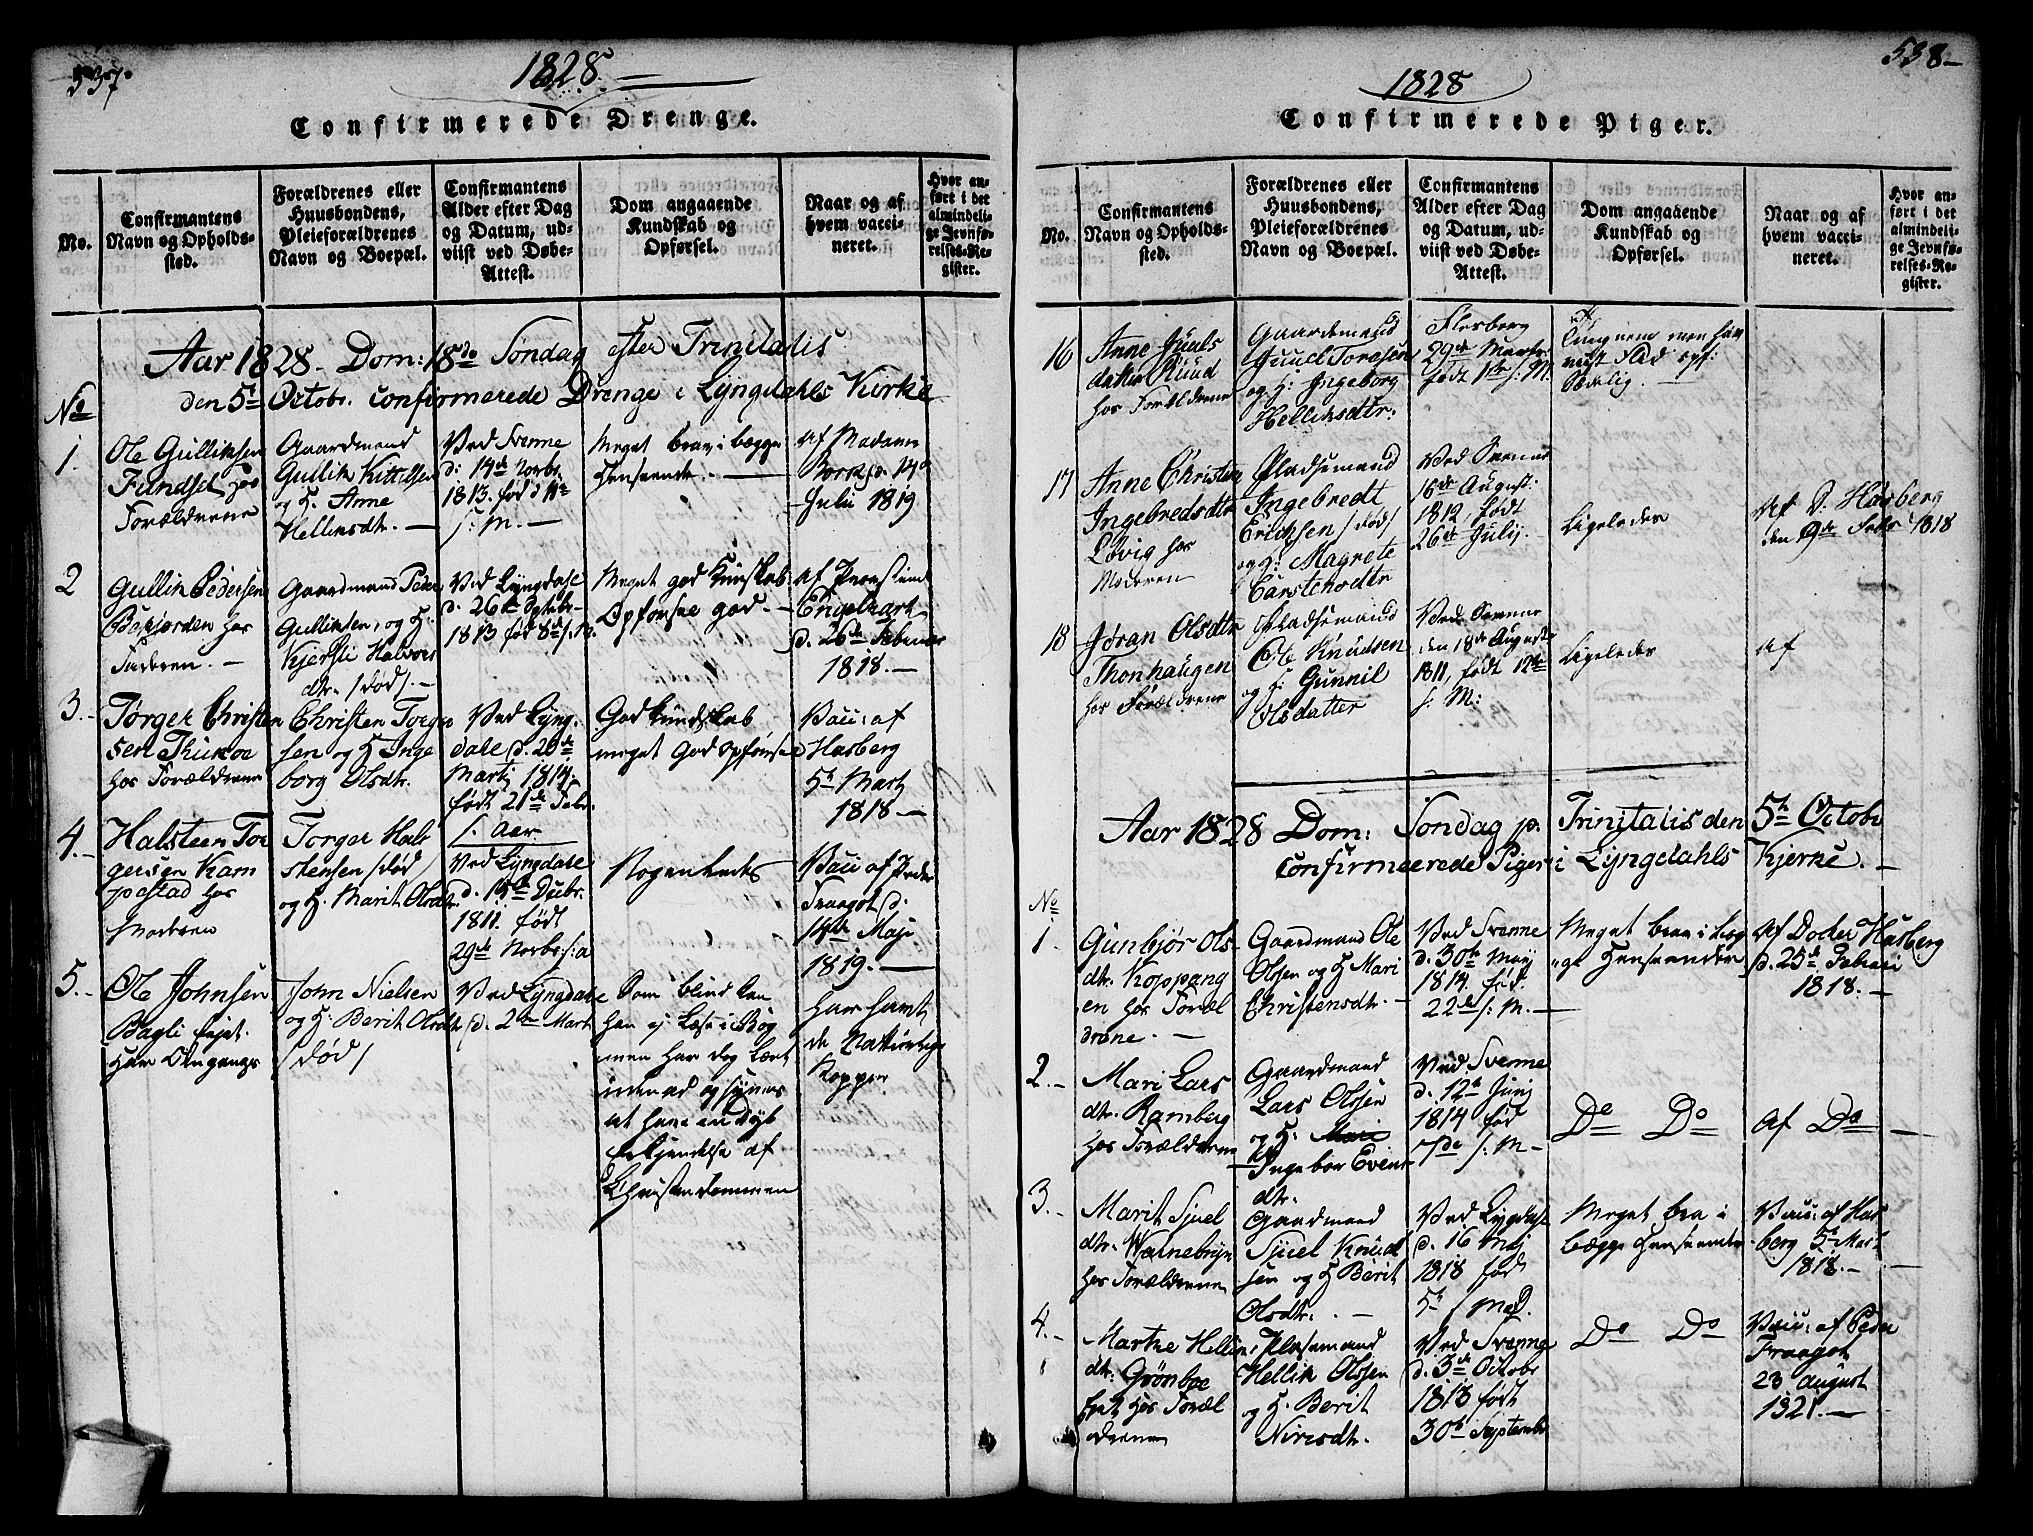 537.
1828.
Confirmerede Drenge.
No.
Confirmantens
Navn og Opholds-
sted.
Forældrenes eller
Huusbondens,
Pleieforældrenes
Navn og Boepæl.
Confirmantens
Alder efter Dag
og Datum, ud-
viist ved Døbe-
Attest.
Dom angaaende
Kundskab og
Opførsel.
Naar og af
hvem vacci-
neret.
Hvor an-
ført i det
almindeli-
ge Jevnfø-
relses-Re-
gister.
Aar 1828. Dom: 18de Søndag efter Trinitatis
den 5te Octobr. confirmerede Drenge i Lyngdahls Kirke
No
1.
Ole Gulliksen
hos
Forældrene
Gaardmand
Gullik Kittelsen
og H. Anne
Helliksdtr. —
Ved Svenne
d: 14de Novbr.
1813. fød d 11te
s: M. —
Meget brav i begge
Henseender. —
Af Madame
Bork d. 14d
Julii 1819
2
Gullik Pedersen
hos
Faderen. —
Gaardmand Peder
Gulliksen, og H:
Kjersti Halvors
dtr. /død/. —
Ved Lyngdale
d. 26de Octobr.
1813 fød 8de s: M.
Meget god Kundskab.
Opførsel god. —
af
Engelhart
d. 26de Februar
1818. —
3. -
Torger Christen
sen
hos Forældrene
Christen Torger
sen og H Inge
borg Olsdtr.
Ved Lyng-
dale d. 20de
Martj 1814. —
født 21de Febr.
s. Aar.
God Kundskab
meget God opførsel
Vacc: af
Hasberg
5te Mart
1818 —
4. -
Halsteen Tor
gersen Kam
pestad hos
Moderen
Torger Hal
stensen /død/
og H. Marit Olsdtr.
Ved Lyngdale
d. 15de Decbr.
1811. født
29de Novbr. s: a
Nogenledes
Vacc af Peder
Fraagot d.
14de Maji
1819. —
5. -
Ole Johnsen
Bagli ejet.
Har Omgangs
John Nielsen
og H: Berit Olsdtr
/død/
Ved Lyngdale
d. 2den Mart
Som blind kan
han ej Læse i Bog
men har dog Lært
indenad og synes
at have en dyb
erkjendelse af
Christendommen
Har havt
de Naturlige
Kopper
538 —
1828
Confirmerede Piger.
No.
Confirmantens
Navn og Opholds-
sted.
Forældrenes eller
Huusbondens,
Pleieforældrenes
Navn og Boepæl.
Confirmantens
Alder efter Dag
og Datum, ud-
viist ved Døbe-
Attest.
Dom angaaende
Kundskab og
Opførsel.
Naar og af
hvem vacci-
neret.
Hvor an-
ført i det
almindeli-
ge Jevnfø-
relses-Re-
gister.
16
Anne Juuls
datter Ruud
hos Forældrene
Gaardemand
Juuel Toresen
og H: Ingeborg
Helliksdtr:
Flesberg
29de Marts
født 1ste s: M.
17
Anne Christine
Ingebredsdtr
Løvig hos
Moderen
Pladsemand
Ingebredt
Ericksen /død/
og H: Magrete
Carstensdtr
Ved Svenne
16de August:
1812, født
26de Julij.
Ligeledes
Af D. Hasberg
den 9de Febr 1818
18
Jøran Olsdtr
Thonhaugen
hos Forældrene
Pladsemand
Ole Knudsen
og H: Gunnil
Olsdatter
Ved Svenne
den 18de August
1811, født 12te
s: M:
Ligeledes
Af
Aar 1828 Dom: Søndag p. Trinitatis den 5te Octobr
confirmeerede Piger i Lyngdahls Kjerke. —
No
1.
Gunbjør Ols-
dtr. Koppang
en hos Foræl
drene. —
Gaardmand Ole
Olsen og H Mari
Christensdtr. —
Ved Svenne
d. 30te Maj
1814. fød.
22de s: M. —
Meget brav i beg
ge Henseender
Af Doder Hasberg
d. 25de Febrari
1818. —
2. -
Mari Lars
dtr. Ramberg
hos Forældrene
Gaardmand
Lars Olsen
og H. Mari
Ingebor Evens
dtr.
Ved Svenne
d. 12te Junj
1814 fød
7de s: M —
Do Do
Af Do —
3. -
Marit Sjuel
dtr.
hos Forældrene
Gaardmand
Sjuel Knud
sen og H Berit
Olsdtr. —
Ved Lygdale
d. 16 Maj
1818 født
5te / Mod.
Meget bra i
begge Henseender
Vacc: af Has
berg 5te Mart
1818. —
4. -
Marthe Hellik
dtr. Grønboe
hos Foræl
drene
Plasemand
Hellik Olsen
og H. Berit
Nirisdtr.
Ved Svenne
d. 3de Octobr
1813 født
30te September
Do Do
Vacc: af Peder
Fraagot
23 august
1821. —